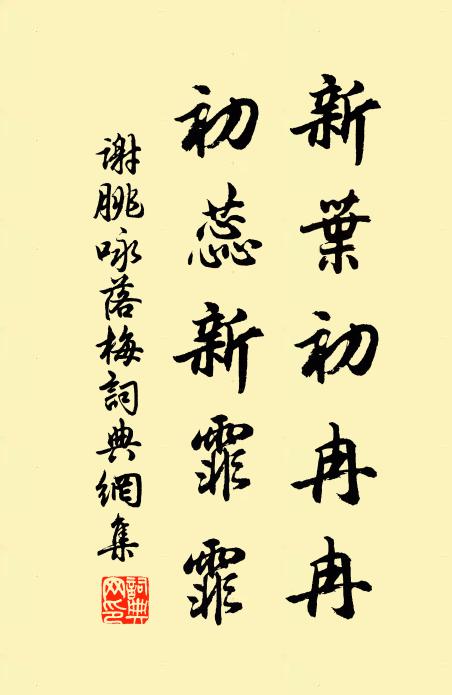 新葉初冉冉
初蕊新霏霏
謝朓咏落梅詞典網集
詞典網印